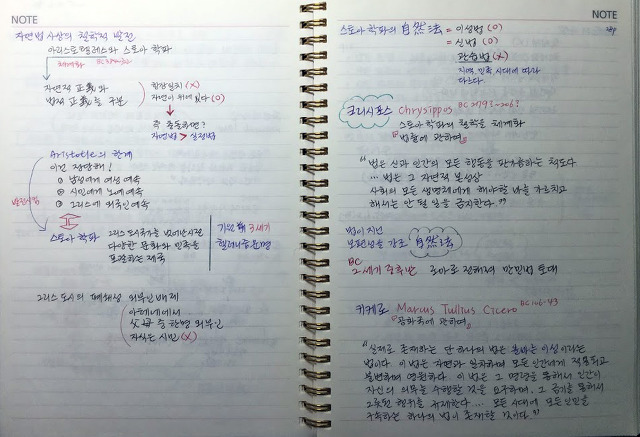 NOTE
자연법 사상의 철학적 발전
아리스토텔레스와 스토아 학파
체계화 BC384-322
자연적 正義와
법적 正義를 구분
항상일치 (X)
자연이 위에 있다 (O)
즉 충돌하면?
자연법 > 실정법
Aristotle의 한계
이건 정당해!
① 남성에게 여성 예속
② 시민에게 노예 예속
③ 그리스에 외국인 예속
스토아 학파
그리스 도시국가를 넘어난 시절
다양한 문화와 민족을
포괄하는 제국
기원 前 3세기
헬레니즘 문명
그리스 도시의 폐쇄성 외부인 배제
아테네에서
父母 중 한명 외부인
자식는 시민 (X)
NOTE
스토아 학파의 自然法 = 이성법 (O)
= 신법 (O)
관습법 (X)
지역, 민족 시대에 따라
다르다.
크리시포스 Chrysippos BC 279?3-206?
스토아 학파의 철학을 체계화
『법률에 관하여』
"법은 신과 인간의 모든 행동을 판가름하는 척도다
... 법은 그 자연적 본성상
사회의 모든 생명체에게 해야 할 바를 가르치고
해서는 안 될 일을 금지한다."
법이 지닌
보편성을 강조 自然法
BC
2세기 중후반 로마로 전해져 만민법 토대
키케로 Marcus Tullius Cicero BC106-43
『공화국에 관하여』
"실제로 존재하는 단 하나의 법은 올바른 이성이라는
법이다. 이 법은 자연과 일치하며 모든 인간에게 적용되고
불변하며 영원하다. 이 법은 그 명령을 통해서 인간이
자신의 의무를 수행할 것을 요구하며, 그 금기를 통해서
그릇된 행위를 규제한다.... 모든 시대에 모든 인민을
구속하는 하나의 법이 존재할 것이다."